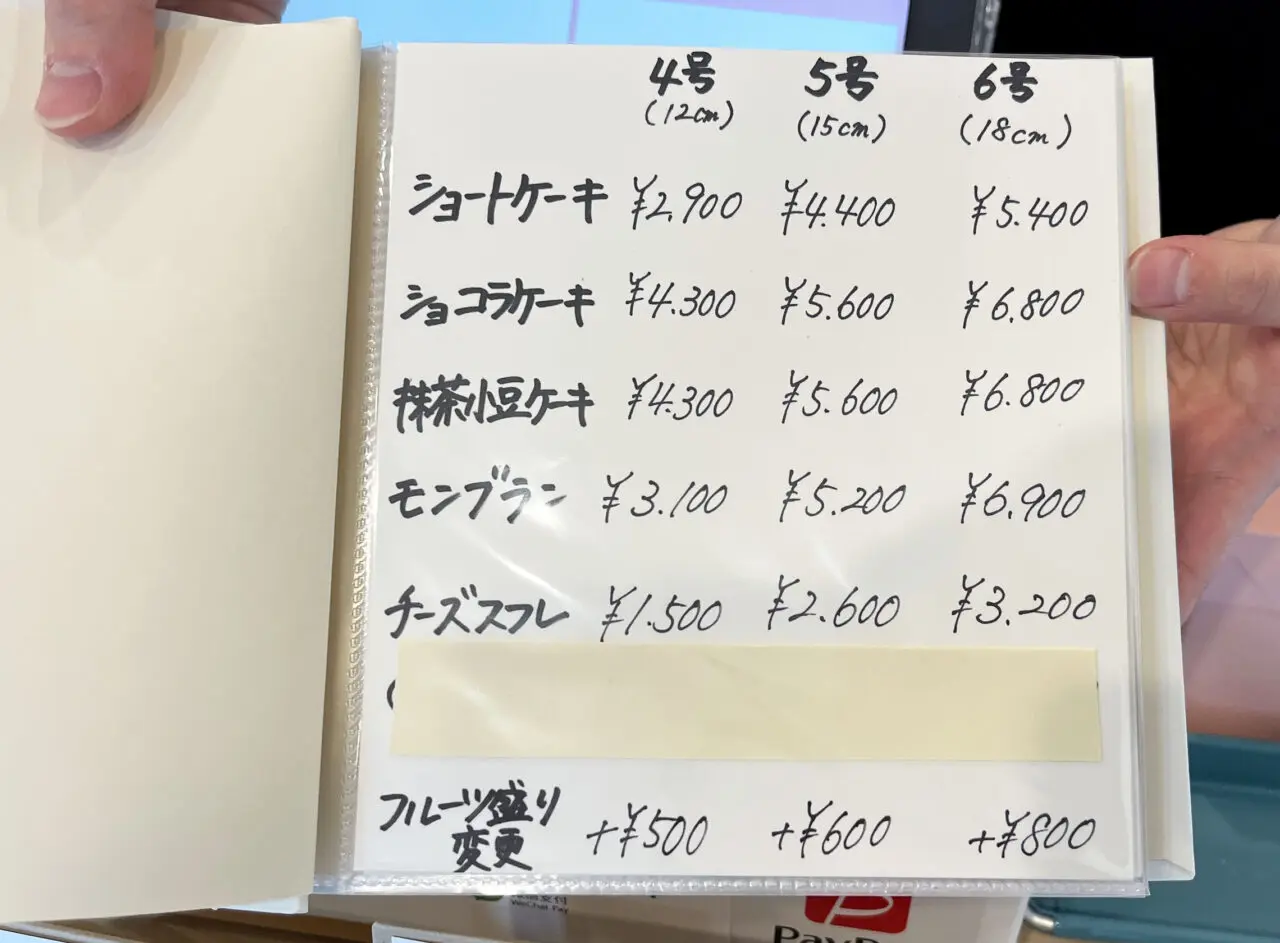 4号 5号 6号
(12cm) (15cm) (18cm)
ショートケーキ ¥2.900 ¥4.400 ¥5.400
ショコラケーキ ¥4.300 ¥5.600 ¥6.800
抹茶小豆ケーキ ¥4.300 ¥5.600 ¥6.800
モンブラン ¥3.100 ¥5.200 ¥6.900
チーズスフレ ¥1.500 ¥2.600 ¥3.200
フルーツ盛り
変更 +¥500 +¥600 +¥800
WeChat Pay